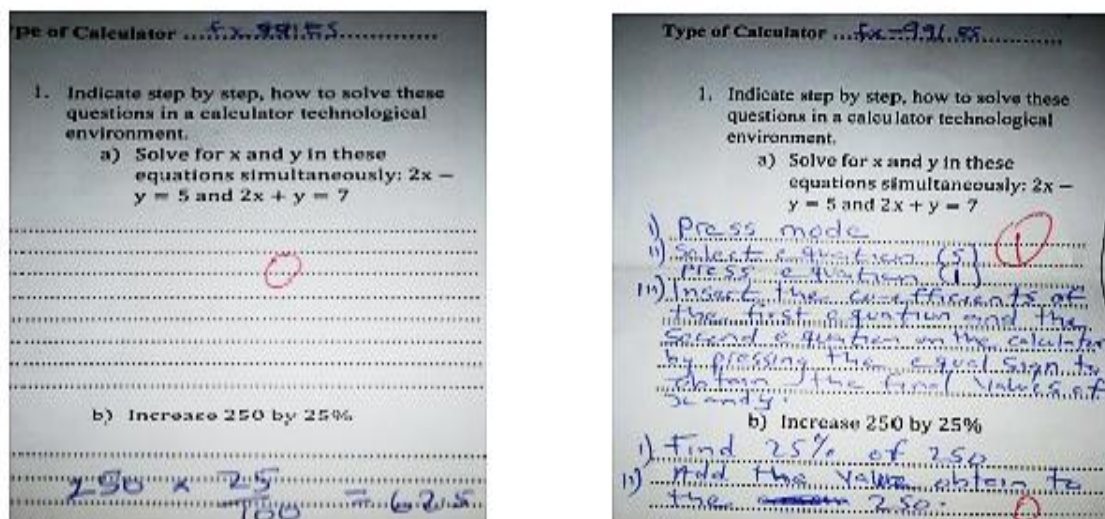 pe of Calculator ...fx.991.ES.............
1. Indicate step by step, how to solve these
questions in a calculator technological
environment.
a) Solve for x and y in these
equations simultaneously: 2x –
y = 5 and 2x + y = 7
0
b) Increase 250 by 25%
250 x 25/100 = 62.5
Type of Calculator ...fx-991.ES............
1. Indicate step by step, how to solve these
questions in a calculator technological
environment.
a) Solve for x and y in these
equations simultaneously: 2x –
y = 5 and 2x + y = 7
i) Press mode
1
ii) Select equation (5)
Press equation (1)
iii) Insert the co-efficients of
the first equation and the
second equation on the calculator
by pressing the equal sign to
obtain the final values of
x and y.
b) Increase 250 by 25%
i) Find 25% of 250
ii) Add the value obtain to
the 250.
0